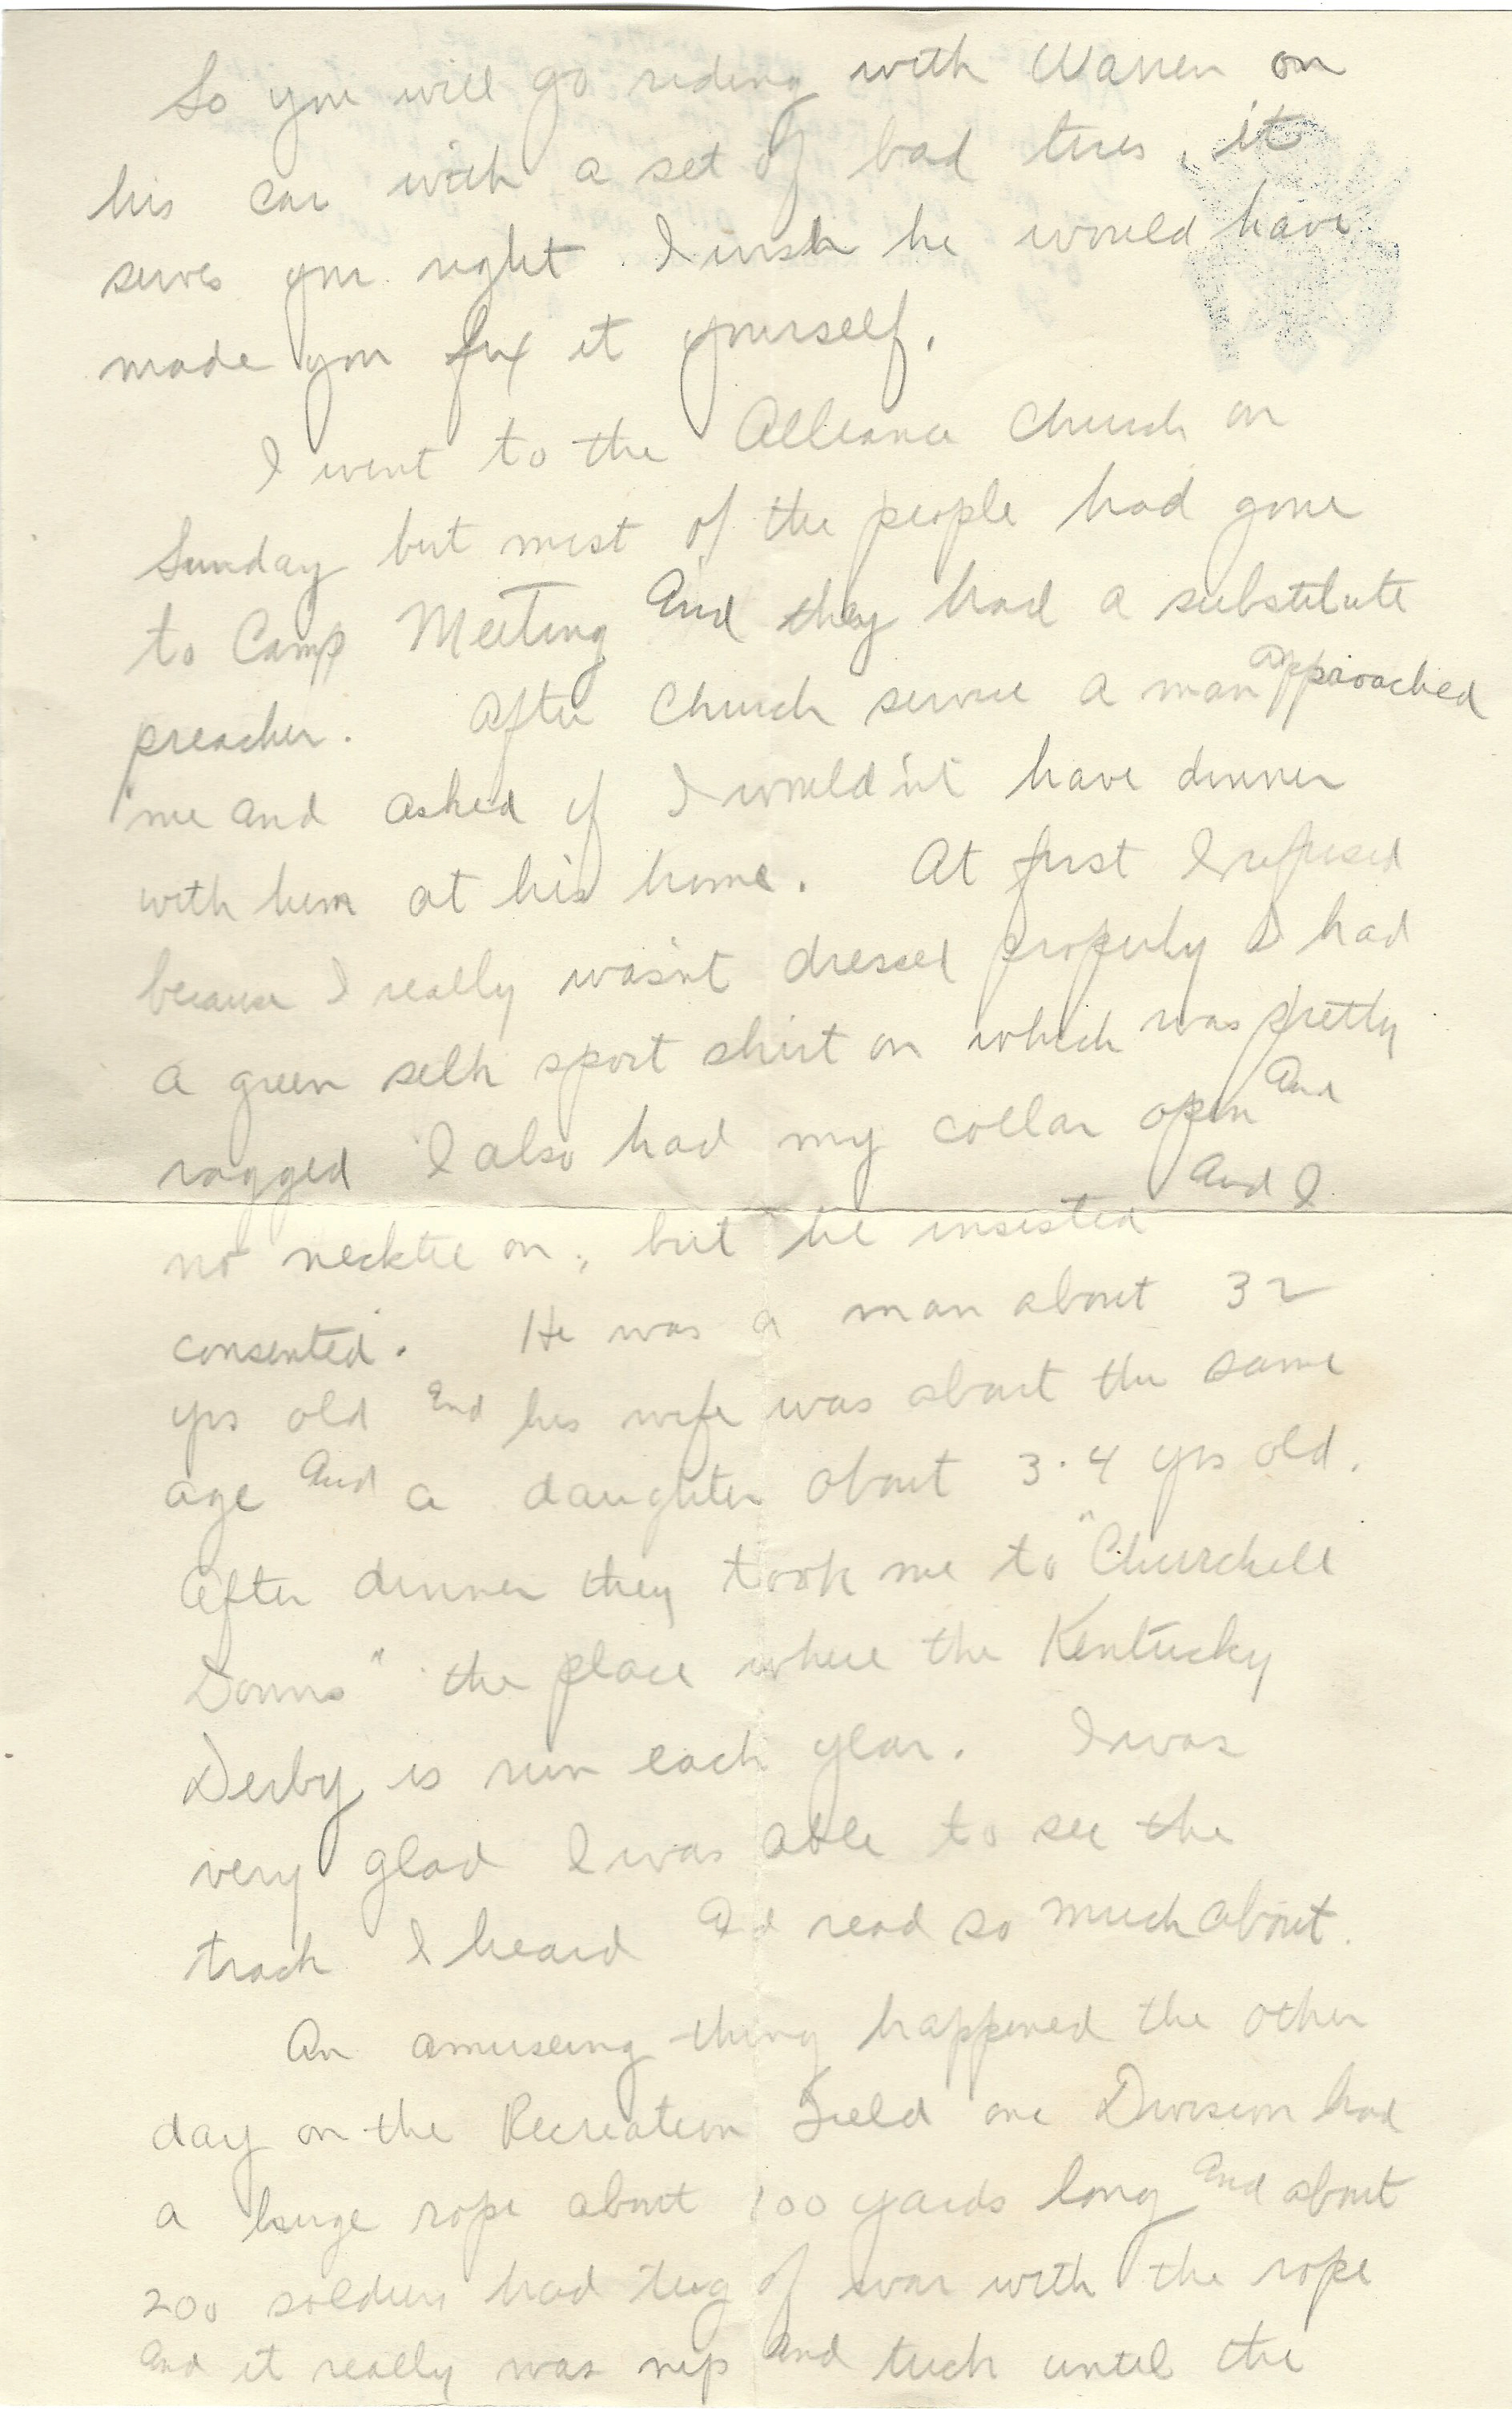 So you will go riding with Warren on
his car with a set of bad tires, it
serves you right. I wish he would have
made you fix it yourself.
I went to the Alliance Church on
Sunday but most of the people had gone
to Camp Meeting And they had a substitute
preacher. After Church service a man approached
me and asked if I would'nt have dinner
with him at his home. At first I refused
because I really wasn't dressed properly I had
a green silk sport shirt on which was pretty
ragged I also had my collar open And
no necktie on, but he insisted And I
consented. He was a man about 32
yrs old And his wife was about the same
age And a daughter about 3-4 yrs old.
After dinner they took me to "Churchill
Downs" the place where the Kentucky
Derby is run each year. I was
very glad I was able to see the
track I heard And read so much about.
An amuseing thing happened the other
day on the Recreation Field one Division had
a huge rope about 100 yards long And about
200 soldiers had tug of war with the rope
And it really was nip And tuck until the